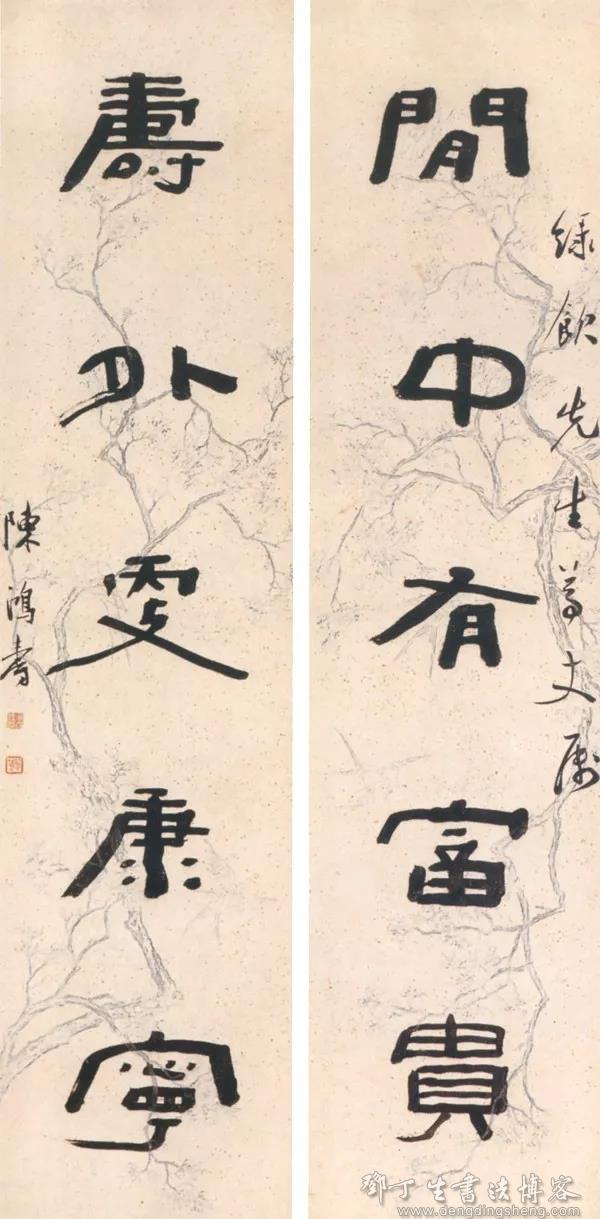 綠飲先生尊丈屬
閒中有富貴
壽外更康寧
陳鴻壽
鄧丁生書法博客
www.dengdingsheng.com